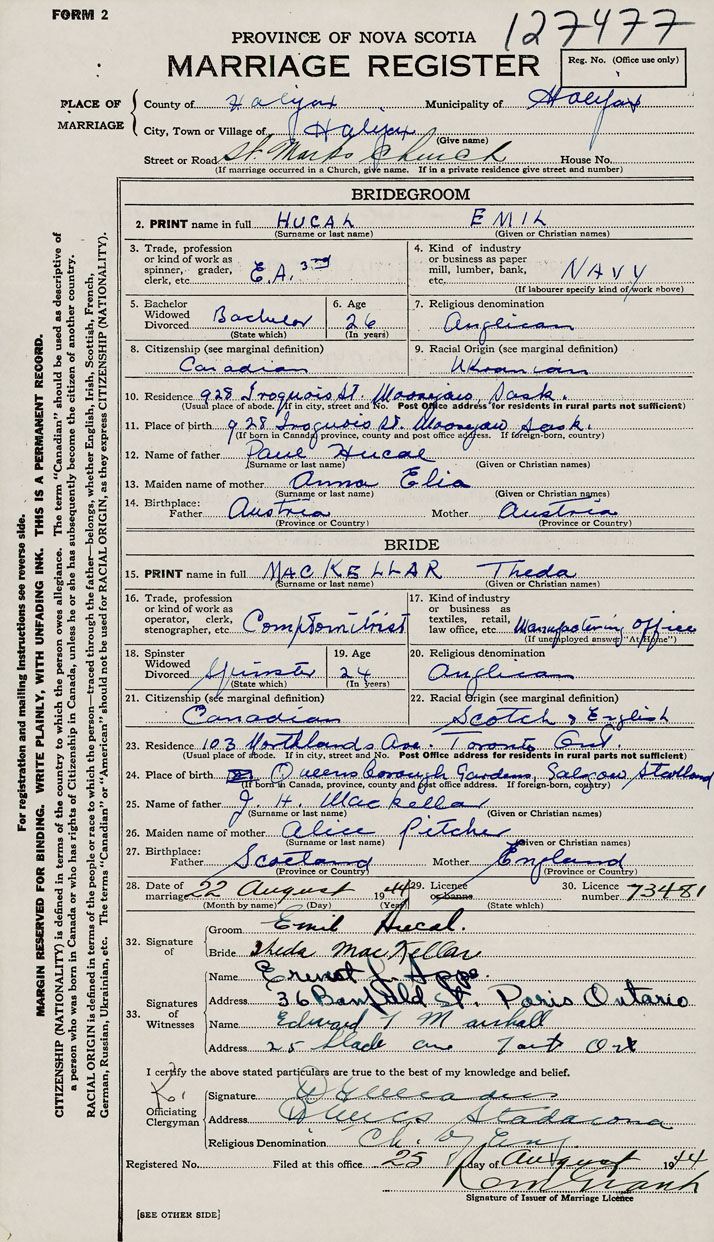 FORM 2
127477
PROVINCE OF NOVA SCOTIA
MARRIAGE REGISTER
Reg. No. (Office use only)
PLACE OF MARRIAGE
County of Halifax Municipality of Halifax
City, Town or Village of Halifax
(Give name)
Street or Road St. Marks Church House No.
(If marriage occurred in a Church, give name. If in a private residence give street and number)
BRIDEGROOM
2. PRINT name in full HUCAL EMIL
(Surname or last name) (Given or Christian names)
3. Trade, profession or kind of work as spinner, grader, clerk, etc. E.A. 3rd
4. Kind of industry or business as paper mill, lumber, bank, etc. NAVY
(If labourer specify kind of work above)
5. Bachelor Widowed Divorced Bachelor
(State which)
6. Age 26
(In years)
7. Religious denomination Anglican
8. Citizenship (see marginal definition) Canadian
9. Racial Origin (see marginal definition) Ukranian
10. Residence 928 Iroquois St. Moosejaw, Sask.
(Usual place of abode. If in city, street and No. Post Office address for residents in rural parts not sufficient)
11. Place of birth 928 Iroquois St. Moosejaw Sask.
(If born in Canada, province, county and post office address. If foreign-born, country)
12. Name of father Paul Hucal
(Surname or last name) (Given or Christian names)
13. Maiden name of mother Anna Elia
(Surname or last name) (Given or Christian names)
14. Birthplace: Father Austria Mother Austria
(Province or Country) (Province or Country)
BRIDE
15. PRINT name in full MACKELLAR Theda
(Surname or last name) (Given or Christian names)
16. Trade, profession or kind of work as operator, clerk, stenographer, etc. Comptometrist
17. Kind of industry or business as textiles, retail, law office, etc. Manufacturing office
(If unemployed answer "At Home")
18. Spinster Widowed Divorced Spinster
(State which)
19. Age 24
(In years)
20. Religious denomination Anglican
21. Citizenship (see marginal definition) Canadian
22. Racial Origin (see marginal definition) Scotch & English
23. Residence 103 Northlands Ave. Toronto Ont.
(Usual place of abode. If in city, street and No. Post Office address for residents in rural parts not sufficient)
24. Place of birth Queensborough Gardens, Scotland
(If born in Canada, province, county and post office address. If foreign-born, country)
25. Name of father J. H. Mackellar
(Surname or last name) (Given or Christian names)
26. Maiden name of mother Alice Pitcher
(Surname or last name) (Given or Christian names)
27. Birthplace: Father Scotland Mother England
(Province or Country) (Province or Country)
28. Date of marriage 22 August 1944
(Month by name) (Day) (Year)
29. Licence or banns
(State which)
30. Licence number 73481
32. Signature of
Groom Emil Hucal.
Bride Theda MacKellar
33. Signatures of Witnesses
Name Ernest
Address 36 Banfield St. Paris Ontario
Name Edward T Marshall
Address 25 Slade ave Ont
I certify the above stated particulars are true to the best of my knowledge and belief.
Officiating Clergyman
Signature
Address Stadacona
Religious Denomination Ch. of Eng.
Registered No. Filed at this office 25 day of August 1944
Signature of Issuer of Marriage Licence
[SEE OTHER SIDE]
For registration and mailing instructions see reverse side.
MARGIN RESERVED FOR BINDING. WRITE PLAINLY, WITH UNFADING INK. THIS IS A PERMANENT RECORD.
CITIZENSHIP (NATIONALITY) is defined in terms of the country to which the person owes allegiance. The term "Canadian" should be used as descriptive of
a person who was born in Canada or who has rights of Citizenship in Canada, unless he or she has subsequently become the citizen of another country.
RACIAL ORIGIN is defined in terms of the people or race to which the person—traced through the father—belongs, whether English, Irish, Scottish, French,
German, Russian, Ukrainian, etc. The terms "Canadian" or "American" should not be used for RACIAL ORIGIN, as they express CITIZENSHIP (NATIONALITY).